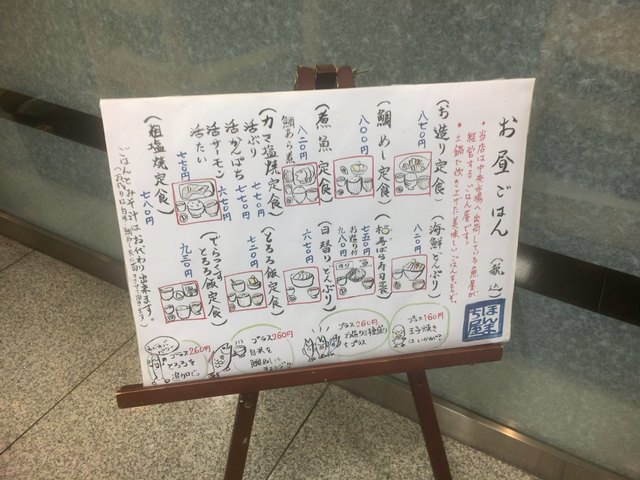 お昼ごはん (税込)
• 当店は中央市場へ出荷している魚屋が
経営するごはん屋です。
• 土鍋で炊き上げた美味しいごはんをどうぞ。
(お造り定食)
八七〇円
(鯛めし定食)
八〇〇円
(煮魚定食)
鯛あら煮
八二〇円
(カマ塩焼定食)
活ぶり 七七〇円
活かんぱち 七七〇円
活サーモン 六七〇円
活たい 七七〇円
(粗塩焼定食)
七八〇円
(海鮮どんぶり)
八二〇円
七五〇円
お造り付
九八〇円
(日替りどんぶり)
六七〇円
(とろろ飯定食)
七二〇円
とろろ飯定食)
九三〇円
ごはんとみそ汁はお代わり出来ます。
ほんまち屋
プラス160円
玉子焼き
はいかが?
プラス260円
お造り三種盛り
をプラス
プラス260円
白米を
鯛めしに
チェンジ!
プラス260円
とろろを